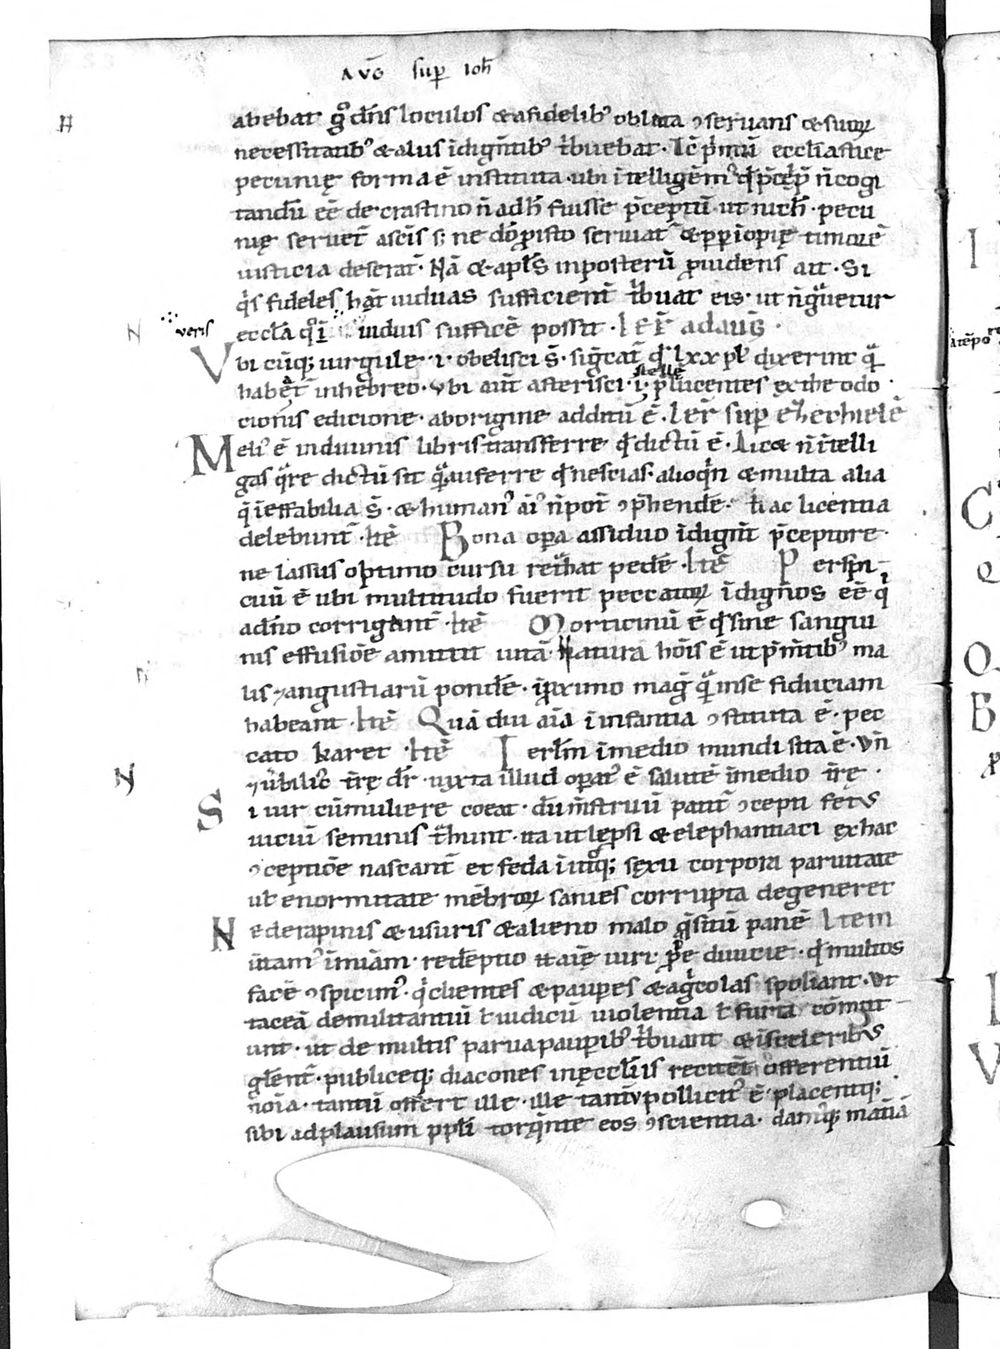 AVG sup Ioh̄
abebat g̊ dn̄s loculos & afidelib; oblata ꝯseruans & suoꝝ
necessitatib; & aliis īdigentib; t̄buebat · Ic̄ p̄mū eccl̄iastice
pecunię forma ē instituta · ubi ītelligem̄ qd̄ p̄cep̄ n̄ cogi
tandū eē de crastino n̄ adh̄ fuisse p̄ceptū · ut nich̄ · pecu
nię seruet̄ a sc̄is s; ne dō ꝓ isto seruiat̄ & ꝓpt̄ īopię timorē
iusticia deserat̄ · Nā & apl̄s in posterū ꝓuidens ait · Si
q̄s fideles hat̄ uiduas sufficient̄ t̄buat eis · ut n̄ g̊uetur
veris
eccl̄a q̊ ī uiduis sufficē possit · Ier̄ ad auḡ ·
Vbi cūq; uirgule · i · obelisci s̄ · siḡcat̄ qd̄ lxx pl̄ dixerint q̄
stelle
habet̄ in hebreo · Vbi aut̄ asterisci · i · p̄lucentes ex theodo
cionis edicione · ab origine additū ē · Ier̄ sup ezechielē
Meli ē in diuinis libris transferre qd̄ dictū ē · licet n̄ ītelli
gas q̄re dictū sit q̄ auferre qd̄ nescias · alioq̄n & multa alia
q̄ īeffabilia s̄ · & human aī n̄ pot̄ ꝯp̄hendē · hac licentia
delebunt̄ · Itē Bona opa assiduo īdiḡnt p̄ceptore ·
ne lassus optimo cursu ret̄hat pedē · Itē Perspi
cuū ē ubi multitudo fuerit peccatoꝝ īdignos eē q̄
a dn̄o corrigant̄ · Itē Morticinū ē qd̄ sine sangui
nis effusiōe amittit uitā · Natura hōis ē ut p̄mentib; ma
lis & angustiarū pondē · ī ꝓximo maḡ q̄ in se fiduciam
habeant · Itē Quā diu aīa ī infantia ꝯstituta ē · pec
cato karet · Itē Ierl̄m ī medio mundi sita ē · Vn̄
& ūbilic t̄rę dr̄ · iuxta illud opat ē salutē ī medio t̄rę ·
Si uir cū muliere coeat · dū m̄struū patit̄ ꝯcepti fet
uiciū seminis t̄hunt · ita ut lepsi & elephantiaci ex hac
ꝯceptiōe nascant̄ et feda ī utroq; sexu corpora paruitate
ul̄ enormitate mēbroꝝ sanies corrupta degeneret
Ne de rapinis & usuris & alieno malo q̄situ panē Item
uitam īmiam · redēptio aīę uiri ꝓp̄e diuicie · qd̄ multos
facē ꝯspicim · q̄ clientes & paupes & ag̊colas spoliant · Vt
taceā de militantiū l̄ iudicū uiolentia l̄ furta cōmitt
unt · ut de multis parua paupib; t̄buant & ī sceleribs
glēnt̄ · publiceq; diacones in eccl̄iis recitēt offerentiū
noīa · tantū offert ille · ille tantū pollicit ē · placentq;
sibi ad plausum ppl̄i torq̄nte eos ꝯscientia · damq; matiā